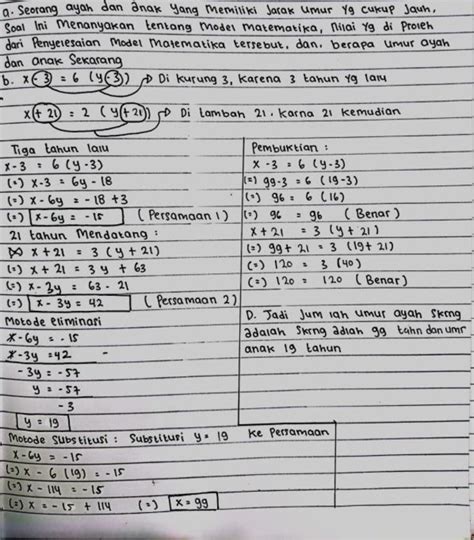 a. Seorang ayah dan anak yang Memiliki Jarak umur yg cukup Jauh,
Soal Ini Menanyakan tentang Model Matematika, Nilai Yg di Proleh
dari Penyelesaian Model Matematika tersebut, dan. berapa umur ayah
dan anak Sekarang
b. x - 3 = 6 (y - 3) Di kurung 3, karena 3 tahun yg lalu
x + 21 = 2 (y + 21) Di tambah 21, karna 21 kemudian
Tiga tahun lalu
x - 3 = 6 (y - 3)
(=) x - 3 = 6y - 18
(=) x - 6y = - 18 + 3
(=) x - 6y = - 15 (Persamaan 1)
21 tahun Mendatang :
x + 21 = 3 (y + 21)
(=) x + 21 = 3y + 63
(=) x - 3y = 63 - 21
(=) x - 3y = 42 (Persamaan 2)
Motode eliminasi
x - 6y = - 15
x - 3y = 42
- 3y = - 57
y = - 57
- 3
y = 19
Motode Substitusi : Substitusi y = 19 ke Persamaan
x - 6y = - 15
(=) x - 6 (19) = - 15
(=) x - 114 = - 15
(=) x = - 15 + 114 (=) x = 99
Pembuktian :
x - 3 = 6 (y - 3)
(=) 99 - 3 = 6 (19 - 3)
(=) 96 = 6 (16)
(=) 96 = 96 (Benar)
x + 21 = 3 (y + 21)
(=) 99 + 21 = 3 (19 + 21)
(=) 120 = 3 (40)
(=) 120 = 120 (Benar)
D. Jadi Jumlah umur ayah Skrng
adalah Skrng adlah 99 tahn dan umr
anak 19 tahun